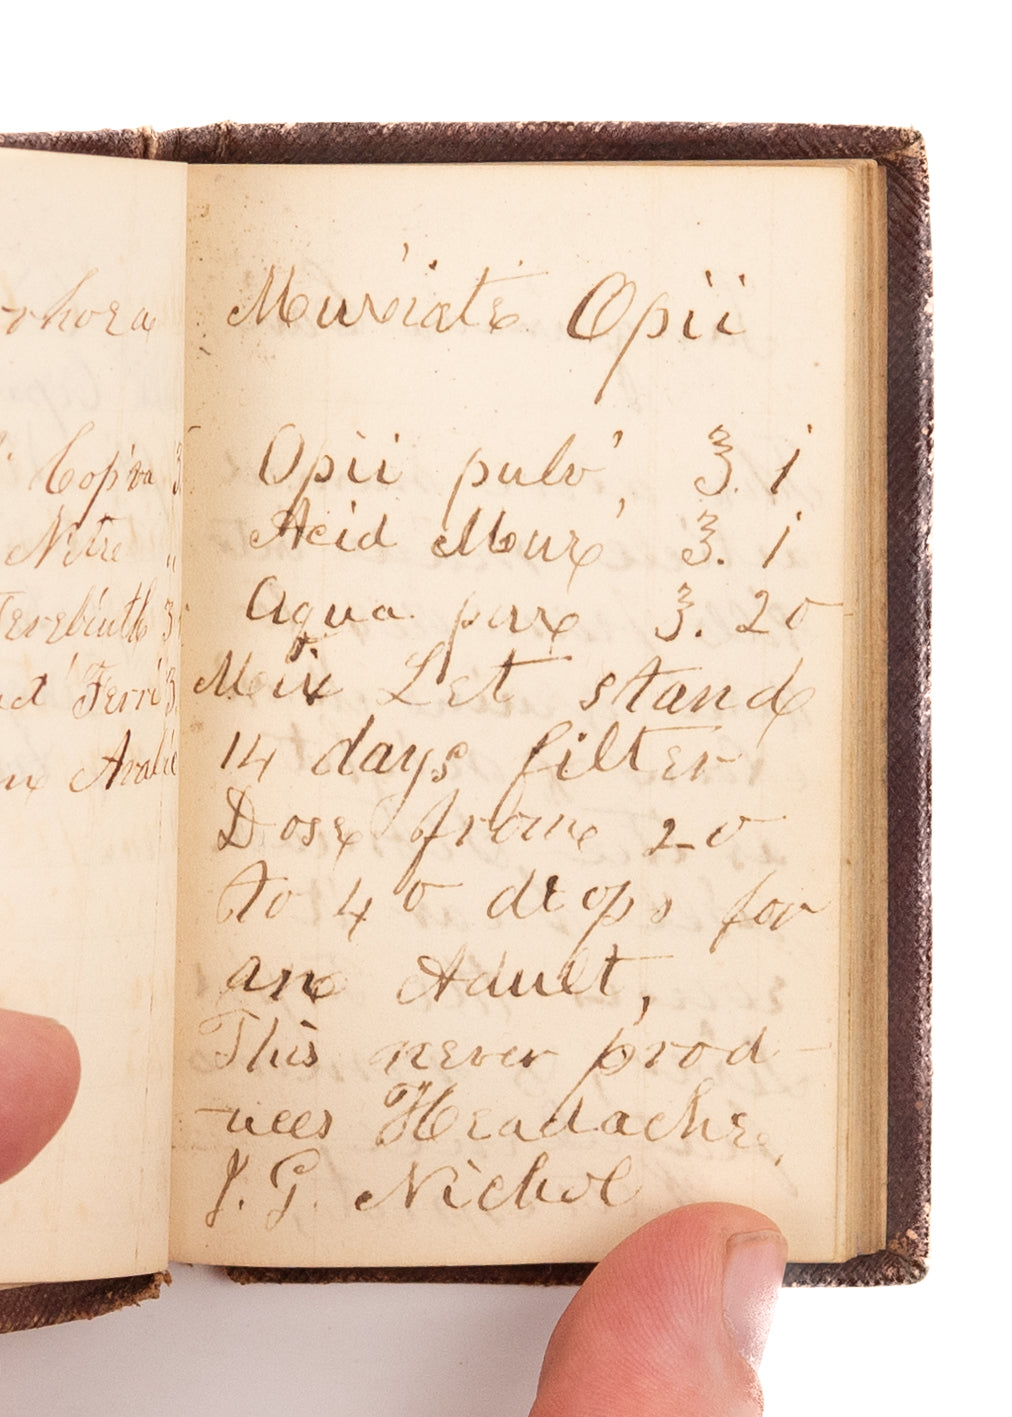 rhoea
Copva
Nitre "
Terebinth
Ferri
Muriate Opii
Opii pulv', ℥. 1
Acid Mur' ℥. 1
Aqua pur ℥. 20
Mix Let stand
14 days filter
Dose from 20
to 40 drops for
an Adult,
This never prod-
-uces Headache,
J. G. Nichol